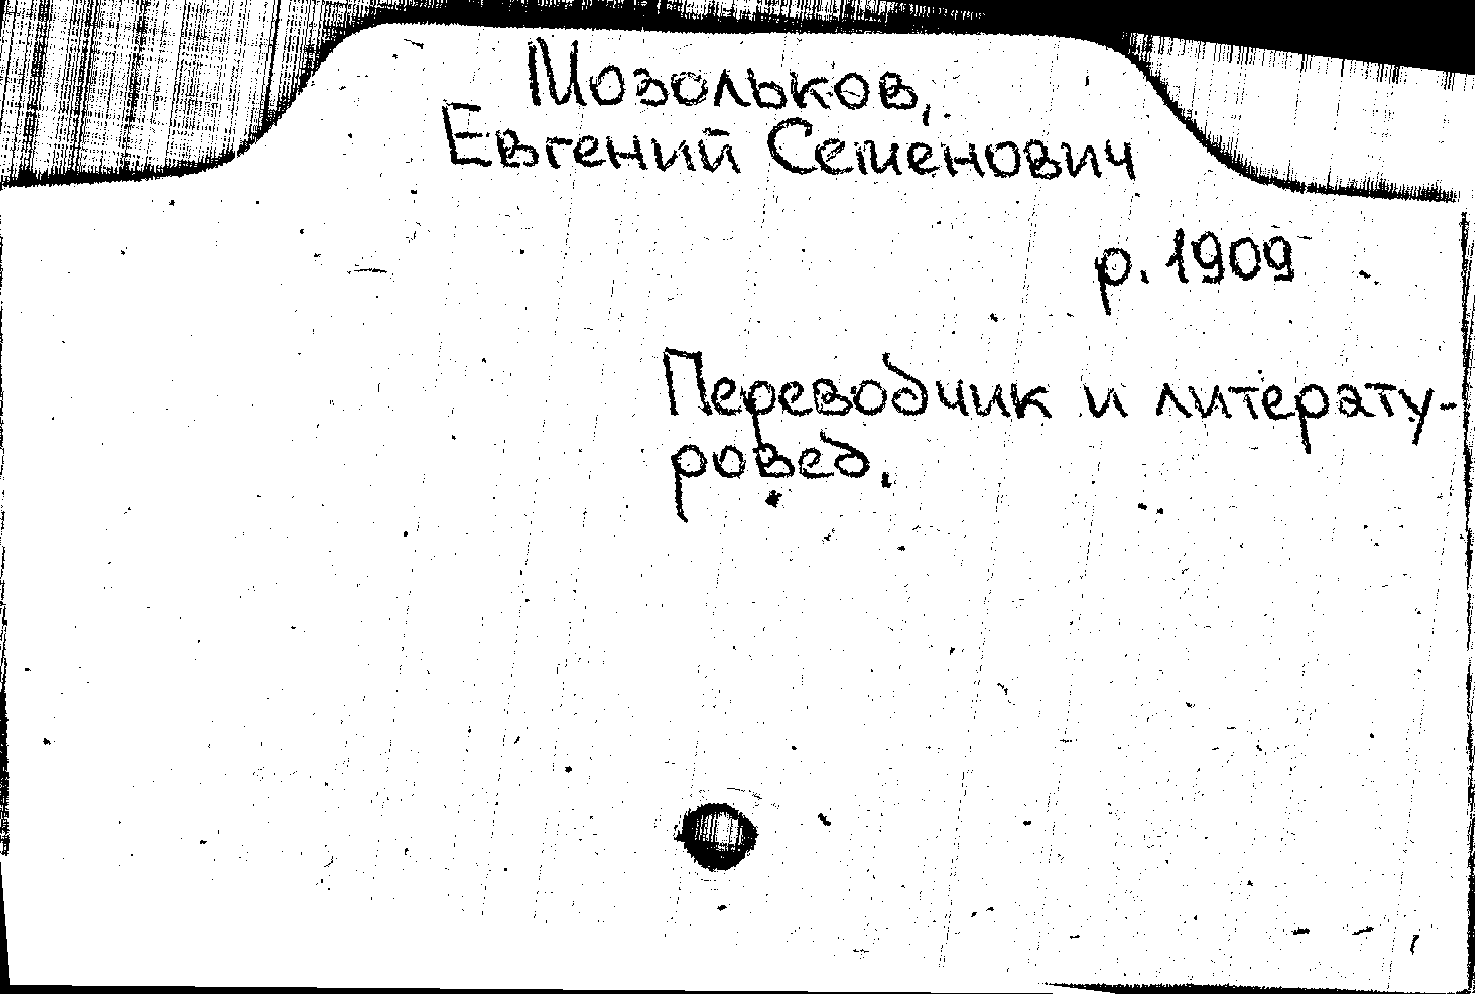 Мозольков,
Евгений Семенович
р. 1909
Переводчик и литерату-
ровед.